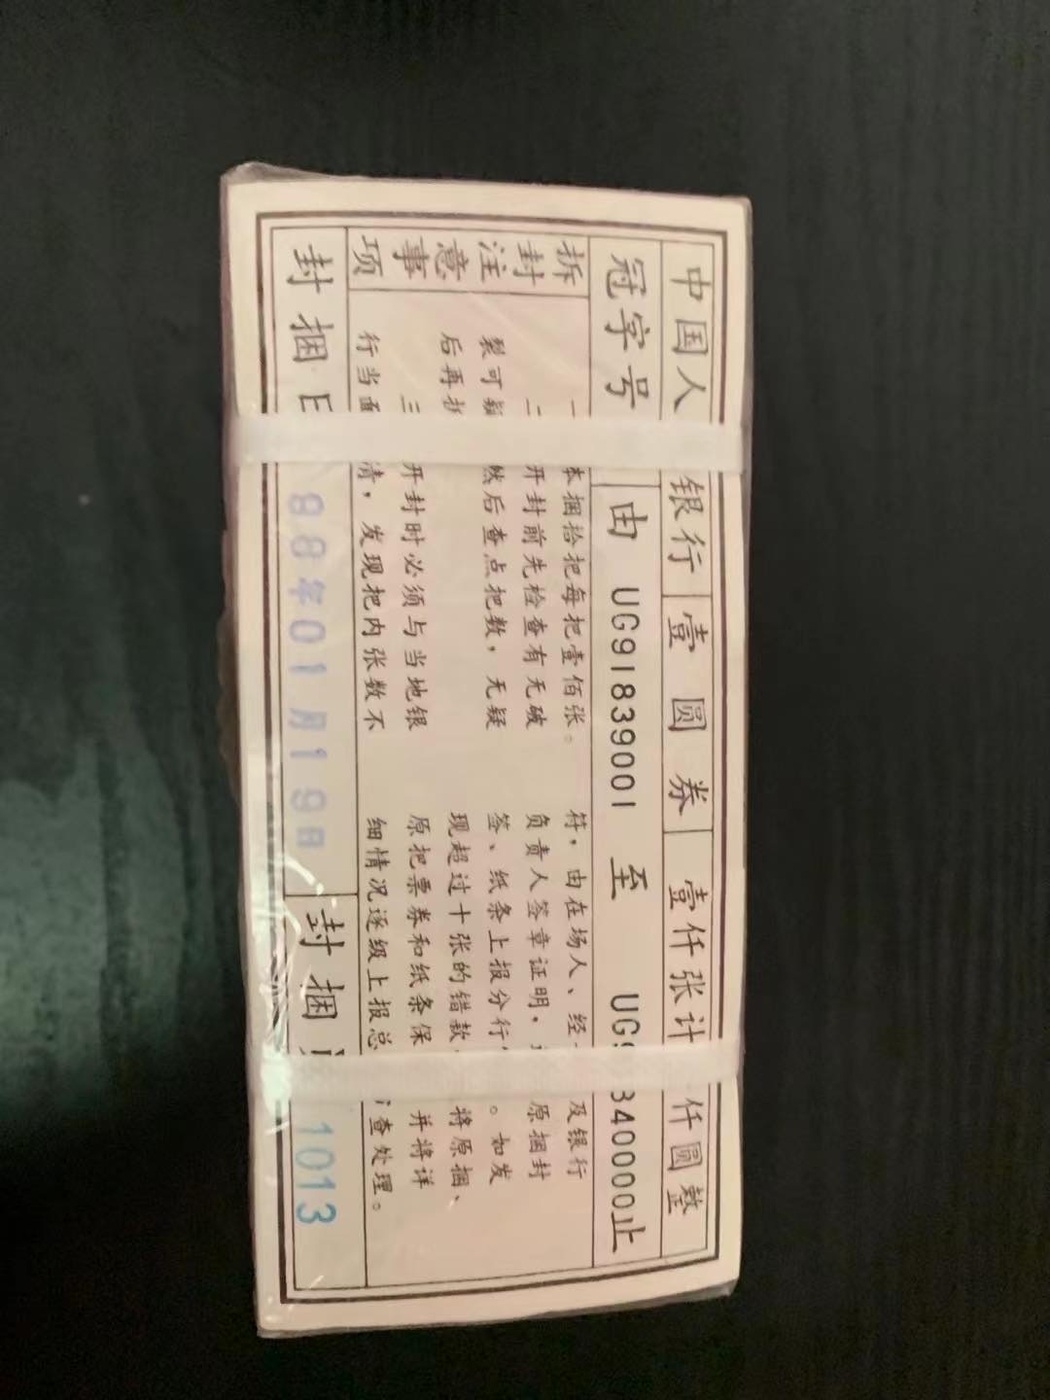 中国人 银行 壹圆券 壹仟张计 仟圆整
冠字号 由 UG91839001 至 UG9 840000止
拆封注意事项
一 本捆拾把每把壹佰张。
二 开封前先检查有无破
裂可疑 然后查点把数，无疑
后再拆
三 开封时必须与当地银
行当面 清，发现把内张数不
符，由在场人、经 及银行
负责人签章证明， 原捆封
签、纸条上报分行 。如发
现超过十张的错款 将原捆、
原把票券和纸条保 并将详
细情况逐级上报总 查处理。
封捆日 88年01月19日 封捆 1013